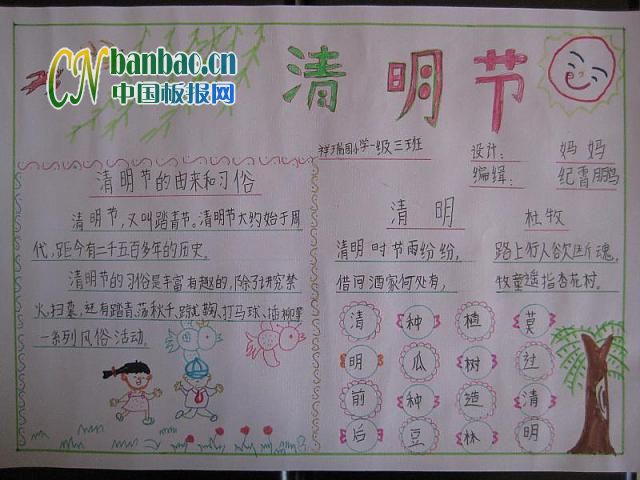 CN banbao.cn
中国板报网
清明节
小学一级三班
设计: 妈妈
编缉: 纪霄鹏
清明节的由来和习俗
清明节,又叫踏青节。清明节大约始于周
代,距今有二千五百多年的历史。
清明节的习俗是丰富有趣的,除了讲究禁
火,扫墓,还有踏青、荡秋千、蹴鞠、打马球、插柳等
一系列风俗活动。
清明 杜牧
清明时节雨纷纷, 路上行人欲断魂,
借问酒家何处有, 牧童遥指杏花村。
清 种 植 莫
明 瓜 树 过
前 种 造 清
后 豆 林 明